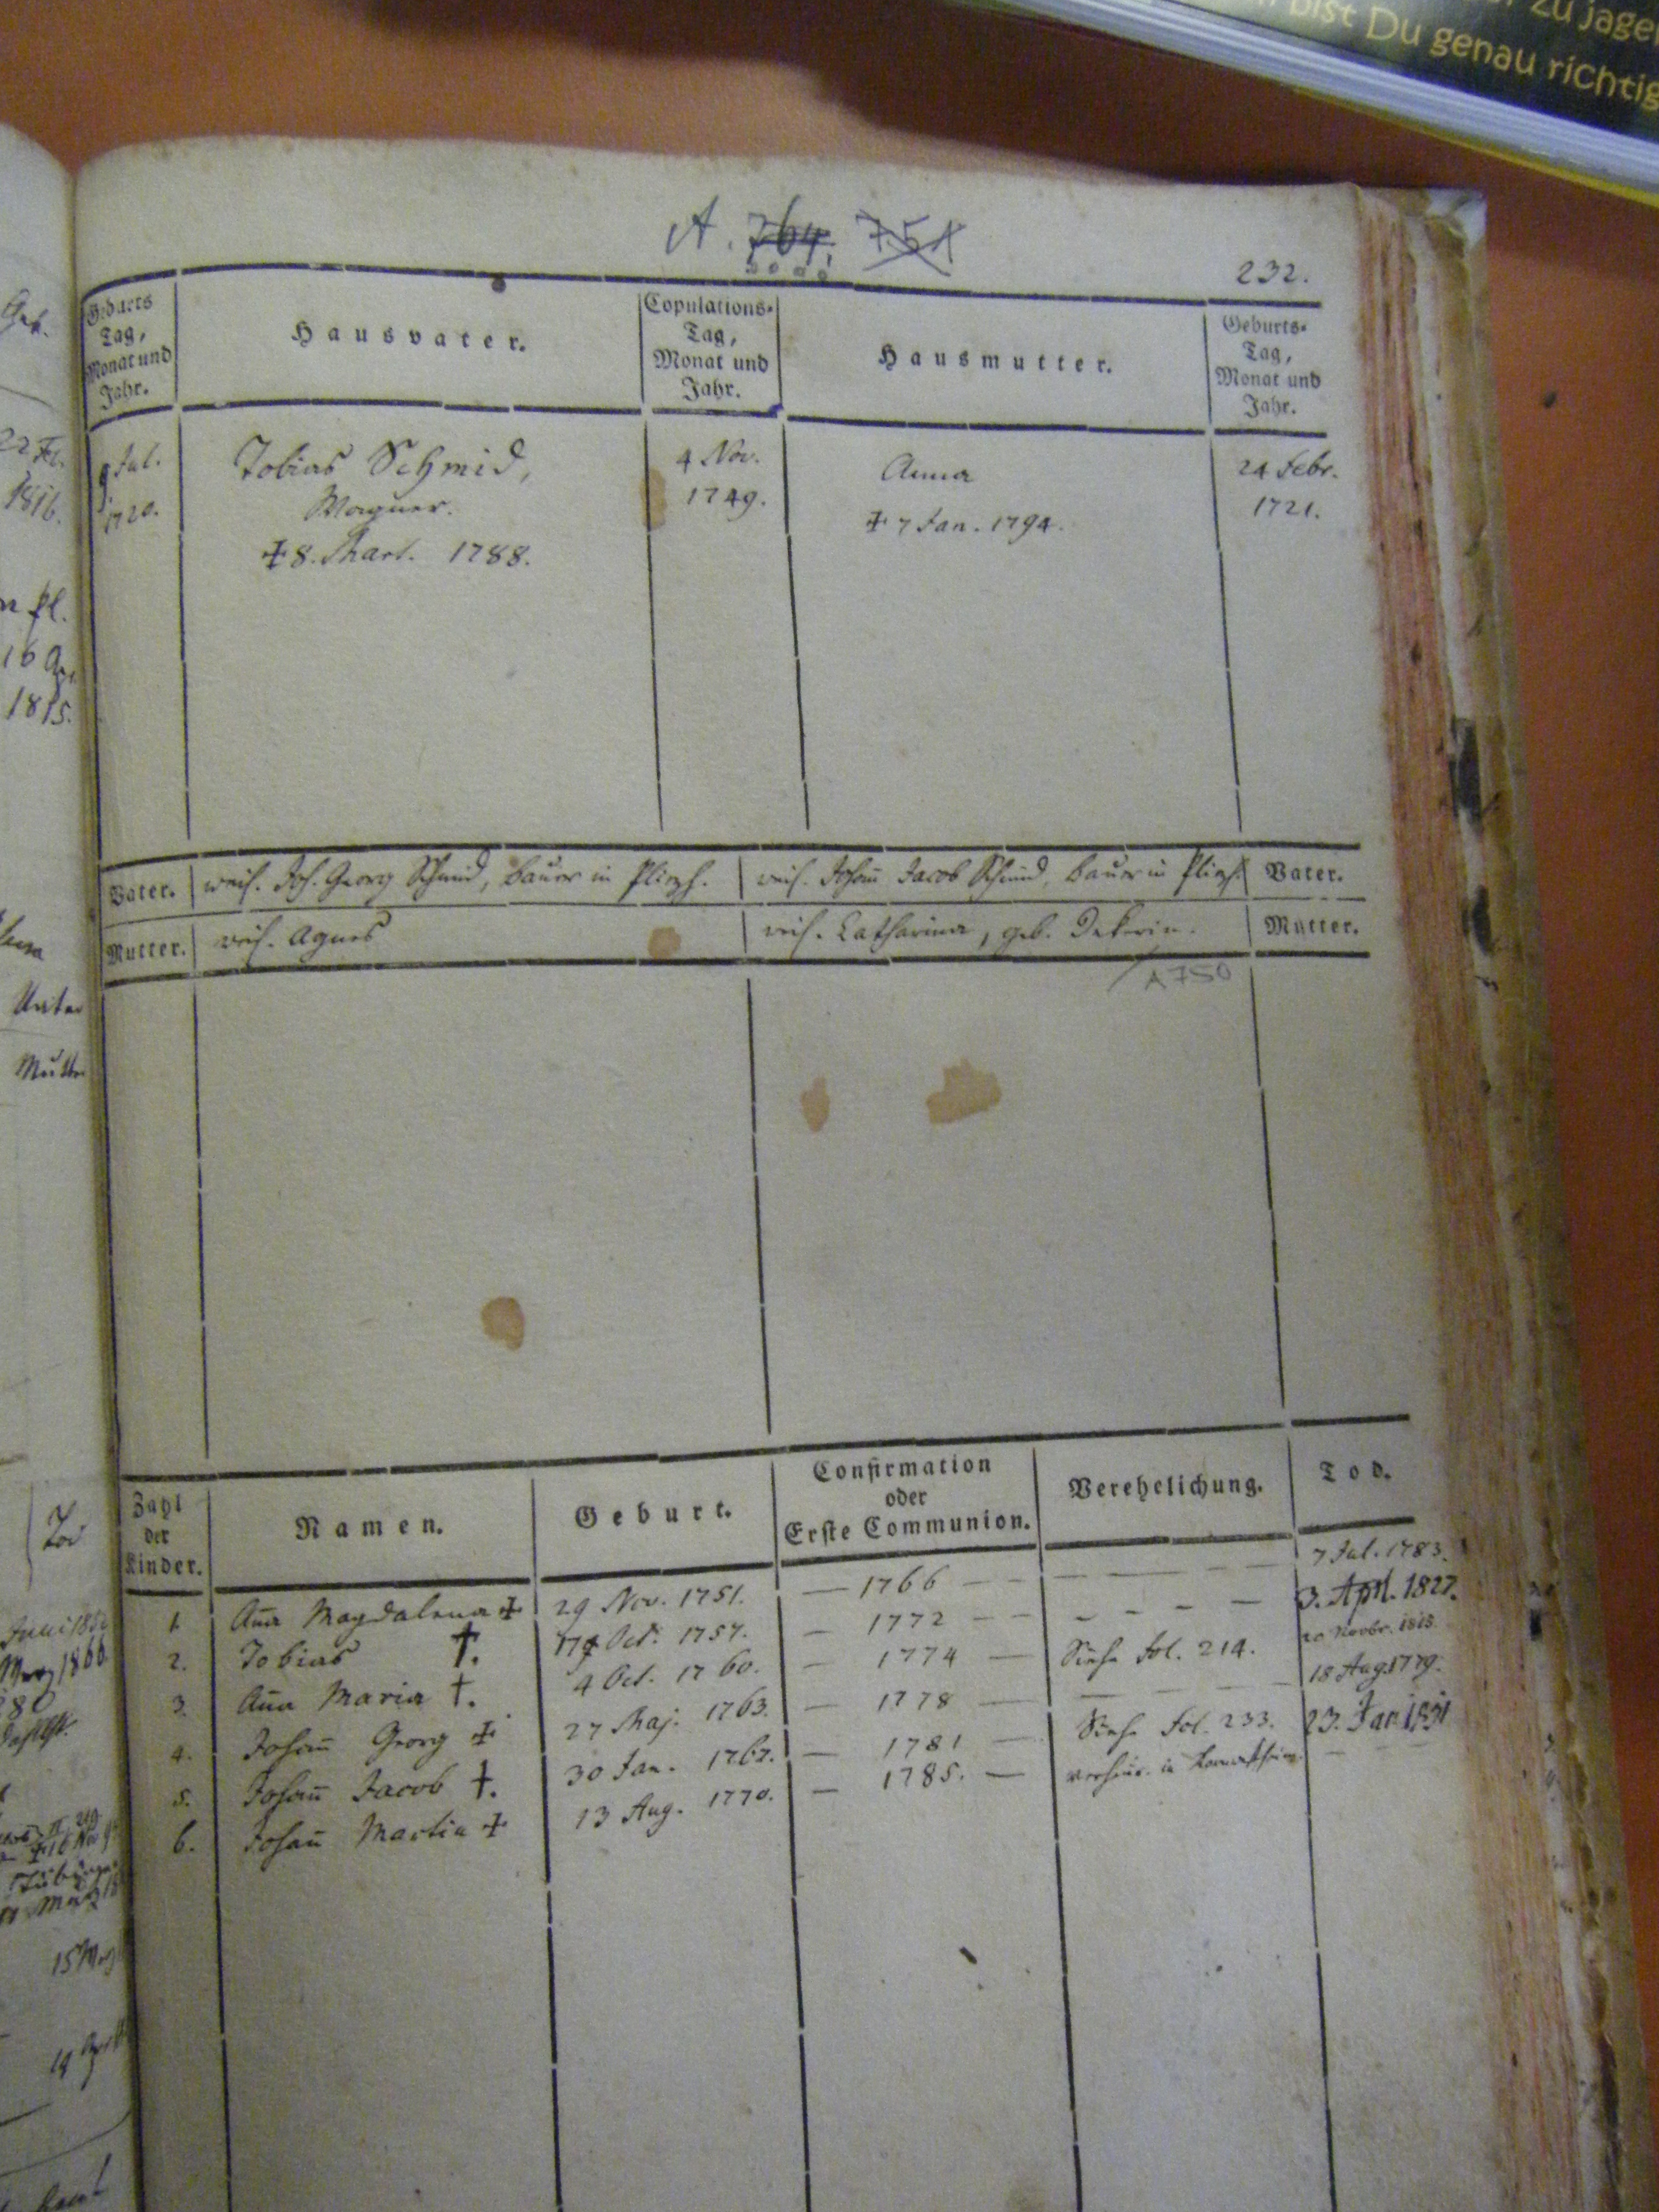 zu jagen
bist Du genau richtig
A. 764. 751
232.
Geburts Tag, Monat und Jahr.
Hausvater.
Copulations- Tag, Monat und Jahr.
Hausmutter.
Geburts- Tag, Monat und Jahr.
9 Jul. 1720.
Tobias Schmid,
Wagner.
† 8. Mart. 1788.
4 Nov. 1749.
Anna
† 7 Jan. 1794.
24 Febr. 1721.
Vater. weil. Joh. Georg Schmid, Bauer in Pliezh. weil. Johann Jacob Schmid, Bauer in Pliezh. Vater.
Mutter. weil. Agnes weil. Catharina, geb. Mutter.
A 750
Zahl der Kinder. Namen. Geburt. Confirmation oder Erste Communion. Verehelichung. Tod.
1. Anna Magdalena † 29 Nov. 1751. — 1766 — — — — 7 Jul. 1783.
2. Tobias †. Oct. 1757. — 1772 — — — — — — 3. Apl. 1827.
3. Anna Maria †. 4 Oct. 1760. — 1774 — Siehe fol. 214. 20 Novbr. 1818.
4. Johann Georg † 27 Maj. 1763. — 1778 — — — — 18 Aug. 1779.
5. Johann Jacob †. 30 Jan. 1767. — 1781 — Siehe fol. 233. 23. Jan 1831
6. Johann Martin † 13 Aug. 1770. — 1785. — verheur. in
22 Fe.
1816.
16
1815.
Vater
Mutter
Tod
Juni 185
1866
15 May
19